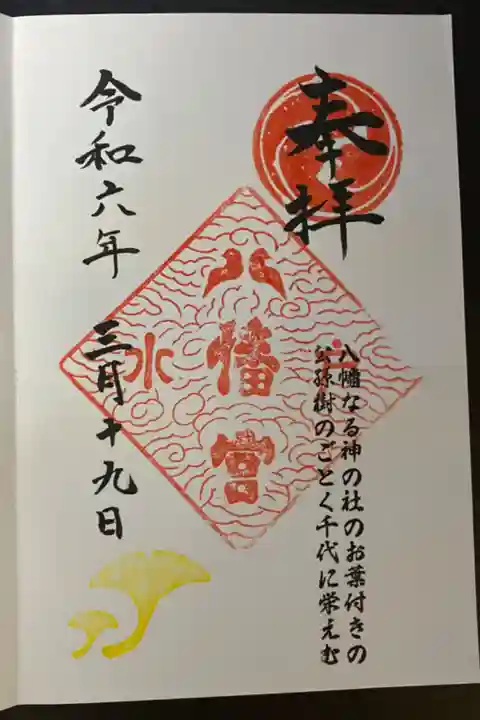 奉拝
八幡なる神の社のお葉付きの
公孫樹のごとく千代に栄えむ
八幡宮
水
令和六年 三月十九日